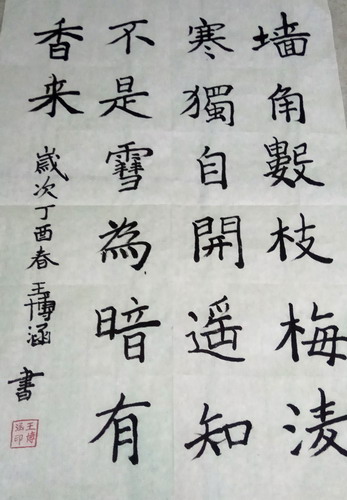 墙角數枝梅淩
寒獨自開遥知
不是雪為暗有
香来
歲次丁酉春王博涵書
王博涵印